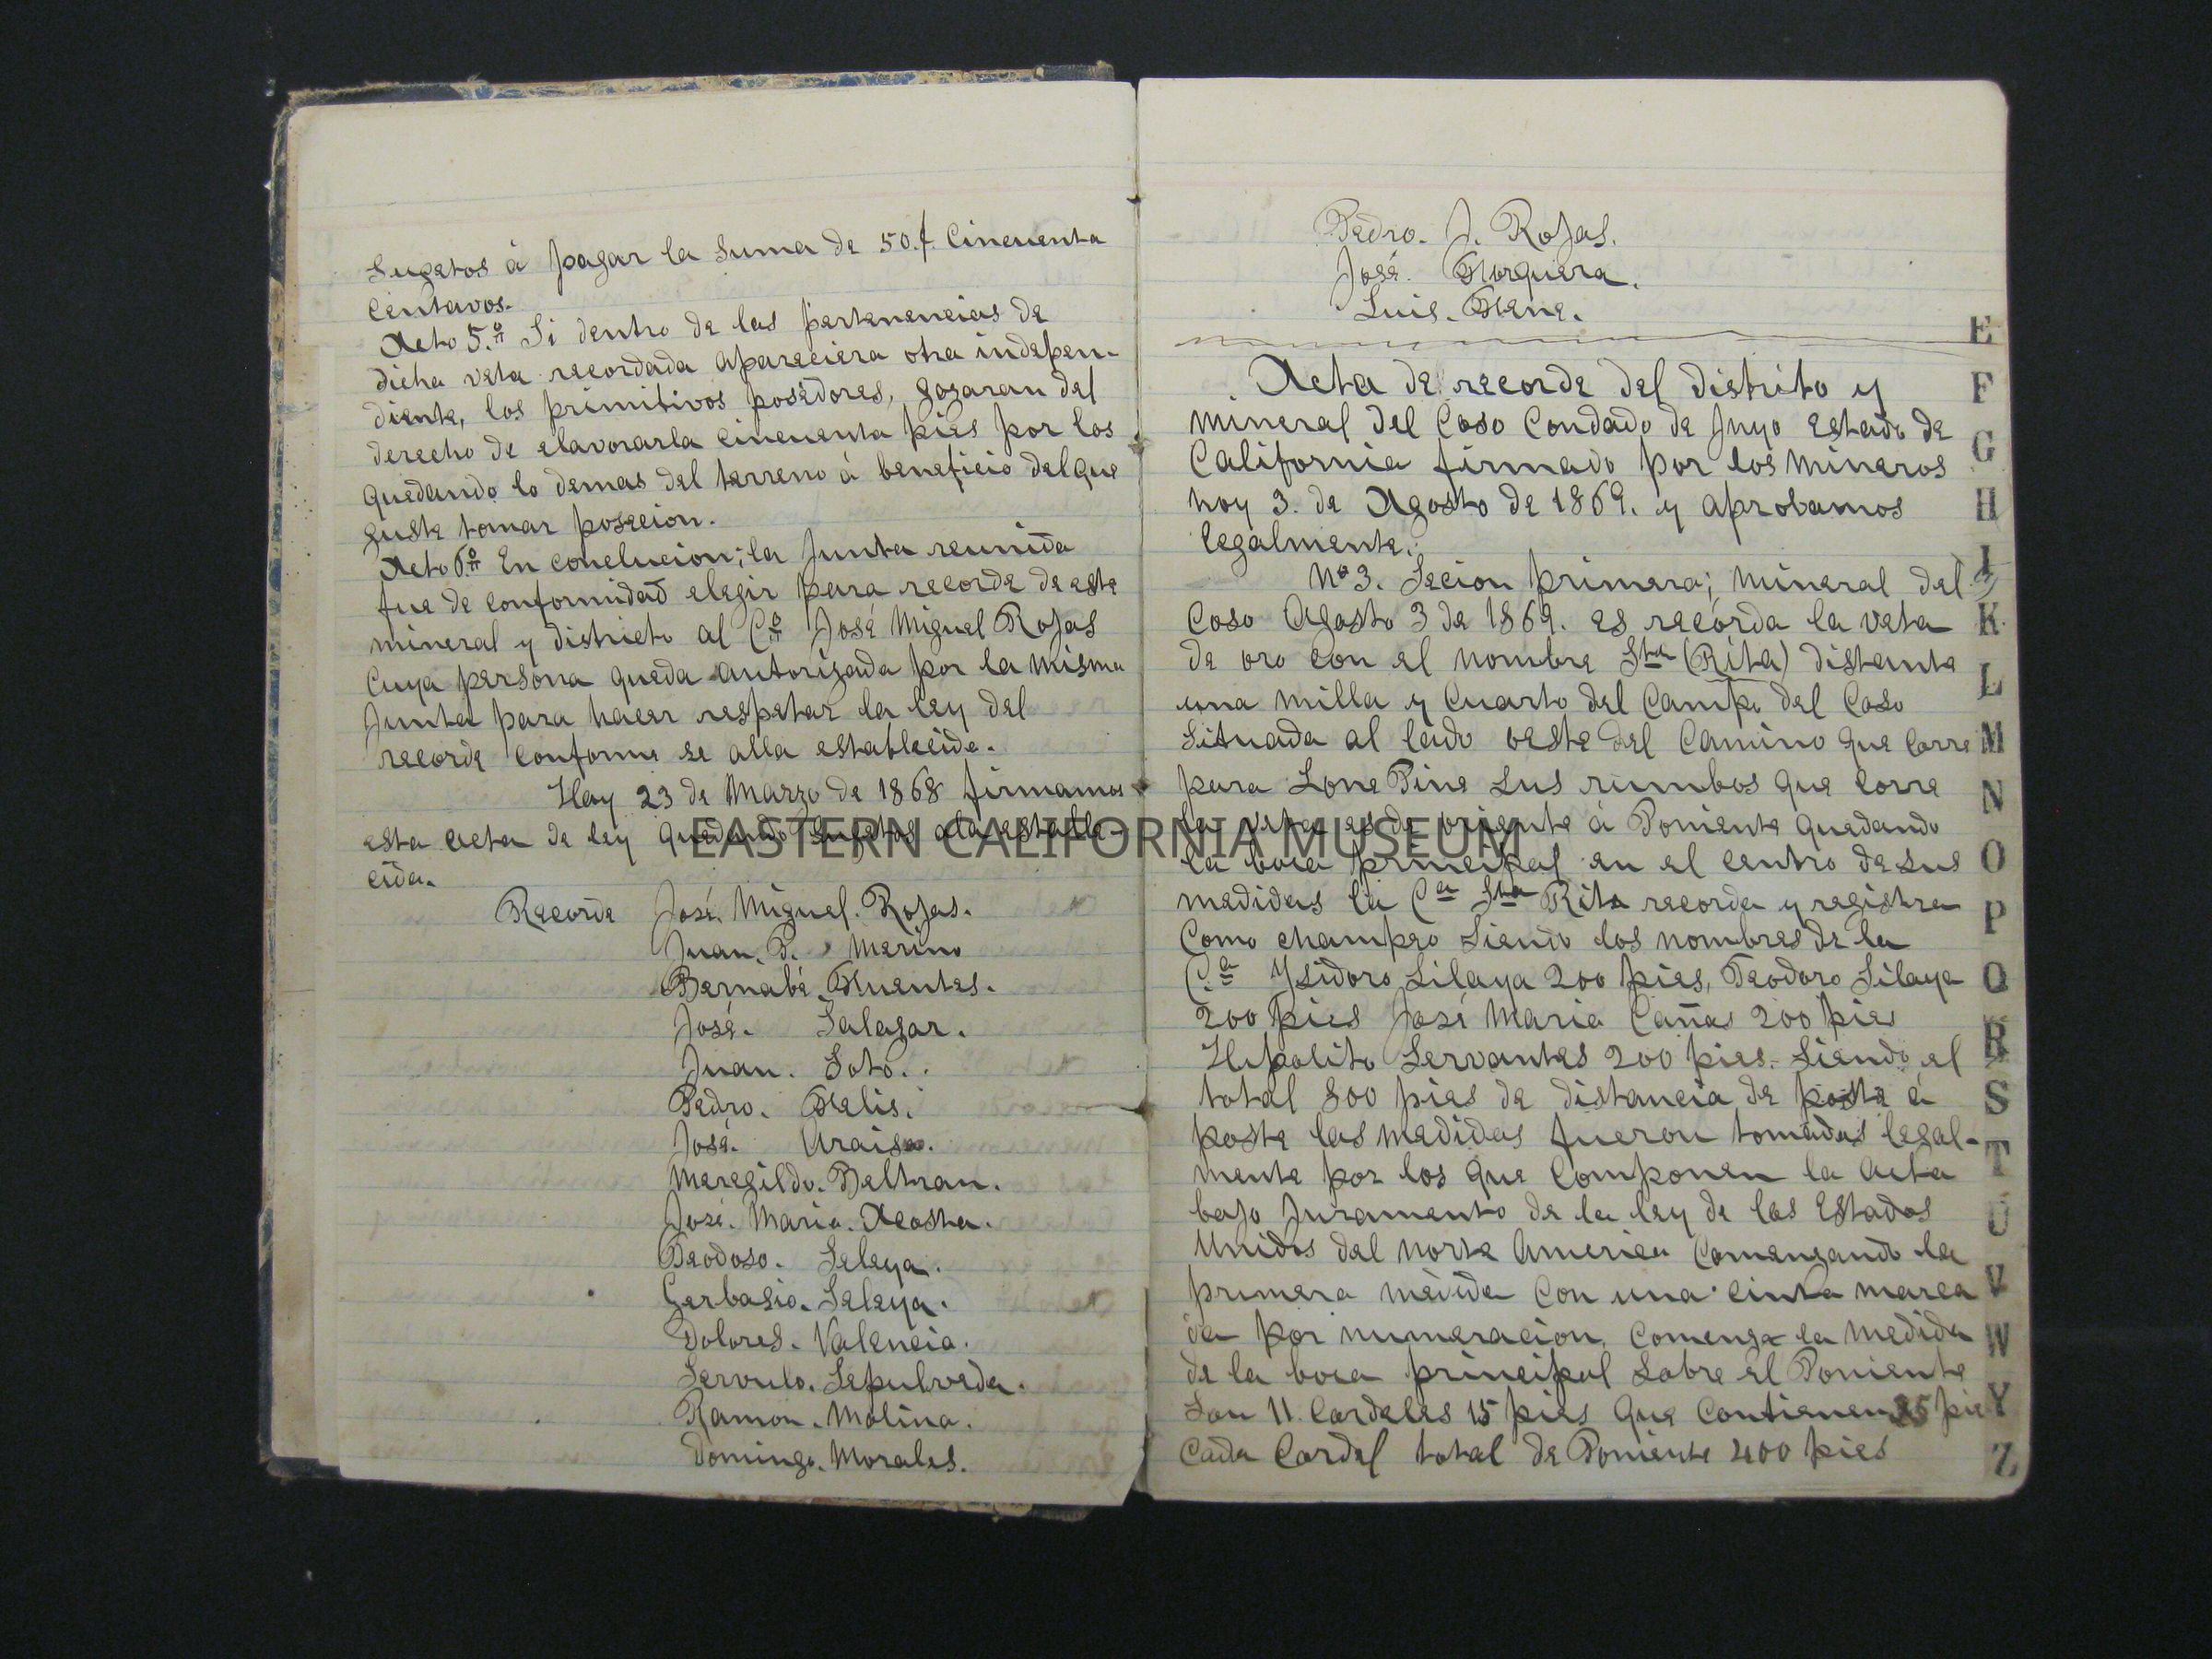 Sugetos á pagar la Suma de 50.¢ Cincuenta
Centavos.
Acto 5.º Si dentro de las pertenencias de
dicha veta recordada apareciera otra indepen-
diente, los primitivos posedores, gosaran del
derecho de elavorarla cincuenta pies por los
quedando lo demas del terreno á beneficio del que
guste tomar posecion.
Acto 6.º En conclucion; la Junta reunida
fue de conformidad elegir para recorde de este
mineral y districto al C.º José Miguel Rojas
Cuya persona queda autorizada por la misma
Junta para hacer respetar la ley del
recorde conforme se alla establecida.
Hoy 23 de Marzo de 1868 firmamos
esta acta de ley quedando Sugetos a la estable-
cida.
Recorde José. Miguel. Rojas.
Juan. P. Merino
Bernabé. Fuentes.
José. Salasar.
Juan. Soto.
Pedro. Felis.
José. Araisa.
Meregildo. Beltran.
José. Maria. Acosta.
Teodoso. Selaya.
Gerbasio. Selaya.
Dolores. Valencia.
Servulo. Sepulveda.
Ramon. Molina.
Domingo. Morales.
Pedro. J. Rojas.
José. Norguera.
Luis.
Acta de recorde del distrito y
mineral del Coso Condado de Inyo Estado de
California firmado por los mineros
hoy 3. de Agosto de 1869. y aprobamos
legalmente.
Nº 3. Secion primera; mineral del
Coso Agosto 3 de 1869. es recorda la veta
de oro con el nombre Sta (Rita) distante
una milla y cuarto del Campo del Coso
Situada al lado oeste del Camino que corre
para Lone Pine Sus rumbos que corre
la veta es de oriente á Poniente quedando
la boca principal en el centro de sus
medidas la Ca Sta Rita recorda y registra
Como champeo Siendo los nombres de la
C.a Ysidoro Silaya 200 pies, Teodoro Silaya
200 pies José Maria Cañas 200 pies
Hipolito Servantes 200 pies. Siendo el
total 800 pies de distancia de poste á
poste las medidas fueron tomadas legal-
mente por los que Componen la acta
bajo Juramento de la ley de los Estados
Unidos del norte America Comensando la
primera medida Con una cinta marca
da por numeracion, Comensa la medida
de la boca principal Sobre el Poniente
Son 11 Cordeles 15 pies que Contienen 35 pie
Cada Cordel total de Poniente 400 pies
E
F
G
H
I
K
L
M
N
O
P
Q
R
S
T
U
V
W
Y
Z
EASTERN CALIFORNIA MUSEUM